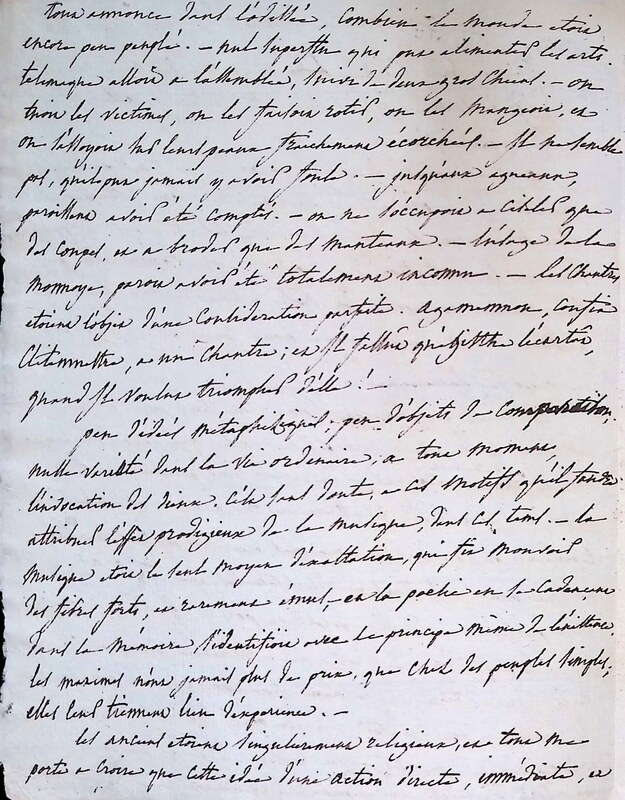 tout annonce dans l'odissée, combien le monde etoit
encore peu peuplé. — nul superflu qui put alimenter les arts.
telemaque alloit a l'assemblée, suivi de deux gros chiens. — on
tuoit les victimes, on les faisoit rotir, on les mangeoit, et
on s'assoyoit sur leurs peaux fraichement écorchées. — Il ne semble
pas, qu'il put jamais y avoir foule. — jusqu'aux agneaux,
paroissent avoir été comptés. — on ne s'occupoit a ciseler que
des coupes, et a broder que des manteaux. — l'usage de la
monnoye, paroit avoir été totalement inconnu. — les chantres
etoient l'objet d'une consideration parfaite. Agamemnon, confia
Clitemnestre, a un chantre; et il fallut qu'Egisthe l'écartat,
quand il voulut triompher d'elle! —
peu d'idées métaphisiques; peu d'objets de comparaison,
nulle variété dans la vie ordinaire, a tout moment,
l'invocation des dieux. C'est sans doute, a ces motifs qu'il faut
attribuer l'effet prodigieux de la musique, dans ces tems. — la
musique etoit le seul moyen d'exaltation, qui fit mouvoir
des fibres forts, et rarement émus, — et la poësie en se cadençant
dans la mémoire, s'identifioit avec le principe même de l'existence.
les maximes n'ont jamais plus de prix, que chez des peuples simples;
elles leur tiennent lieu d'experience. —
les anciens etoient singulierement religieux, et tout me
porte a croire que cette idée d'une action directe, immédiate, et